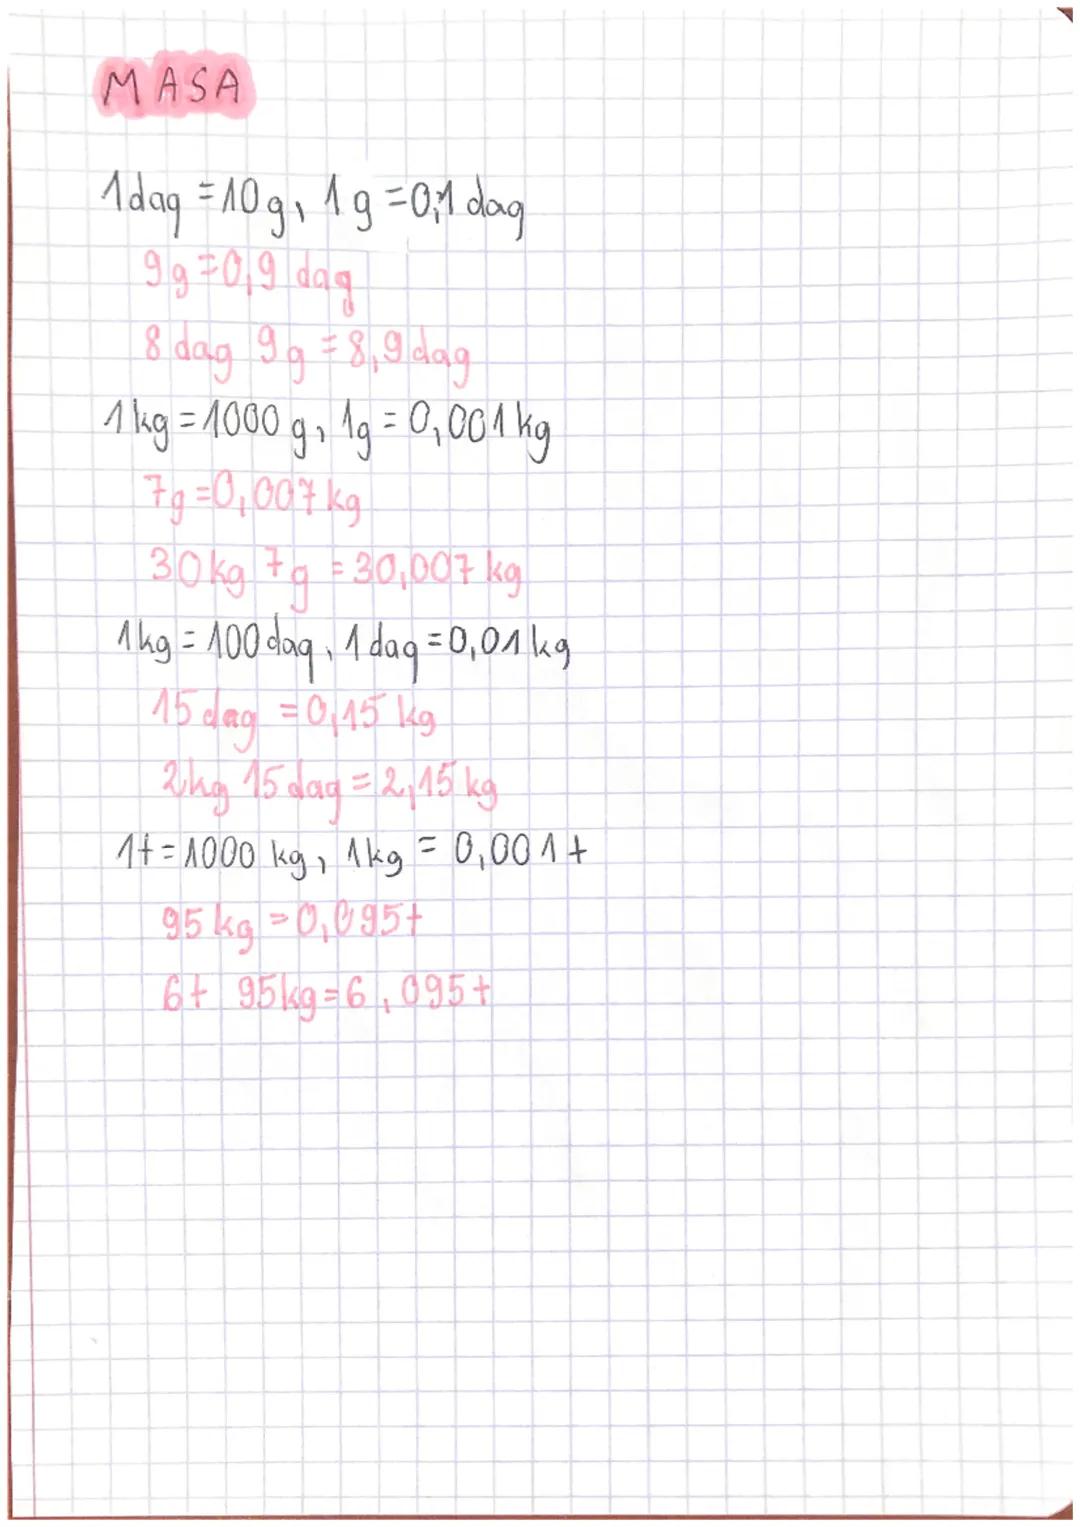 MASA
1dag = 10g, 1g = 0,1 dag
9g = 0,9 dag
8 dag 9g = 8,9 dag
1kg = 1000 g, 1g = 0,001 kg
7g = 0,007 kg
30kg 7g = 30,007 kg
1kg = 100dag, 1dag = 0,01kg
15 dag = 0,15 kg
2kg 15dag = 2,15 kg
1t = 1000 kg, 1kg = 0,001t
95kg = 0,095t
6t 95kg = 6,095t